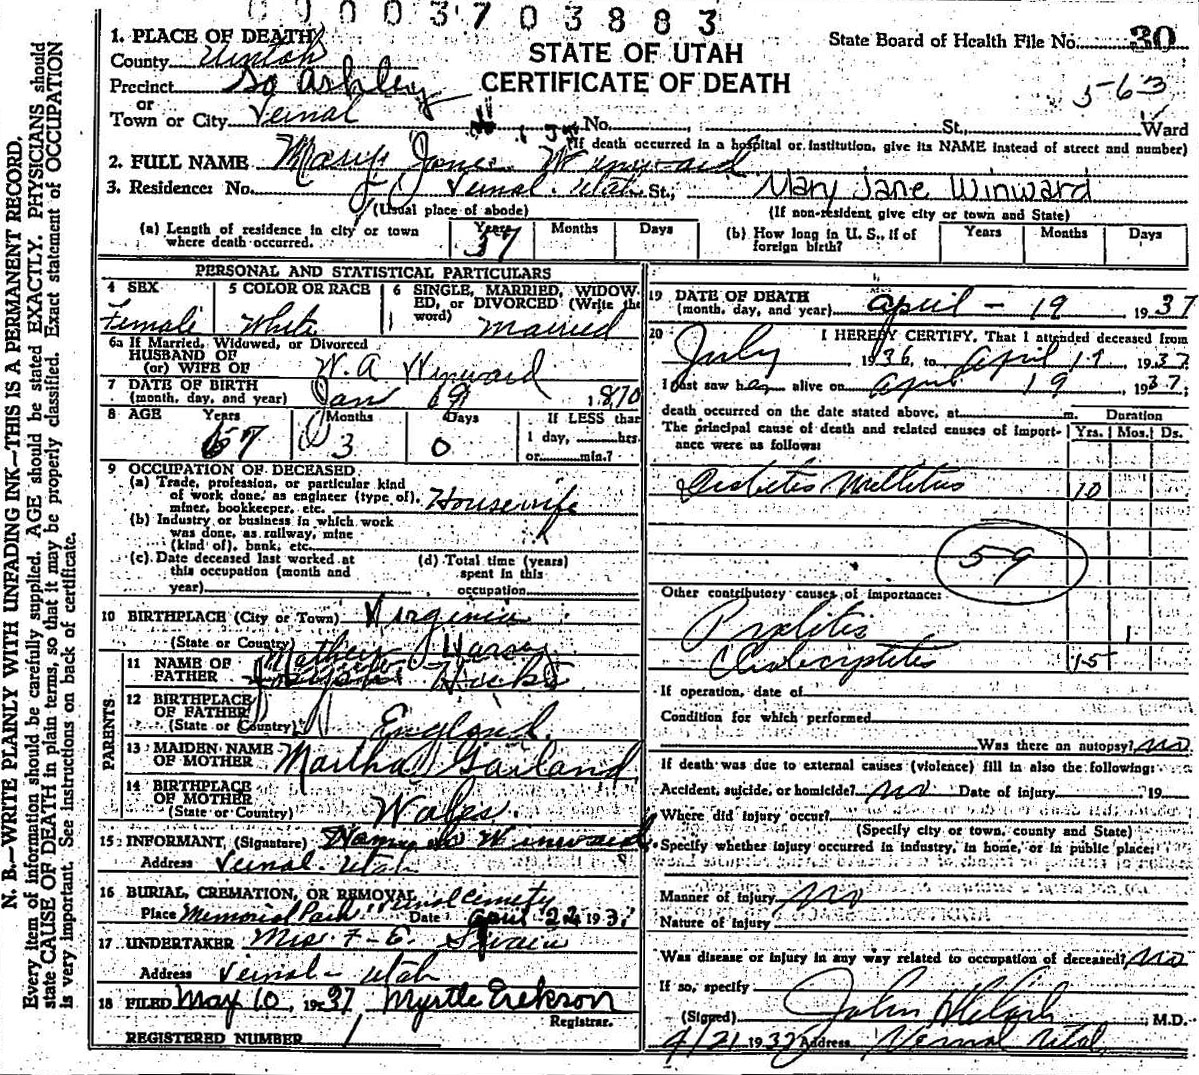 0003703883
1. PLACE OF DEATH
STATE OF UTAH
CERTIFICATE OF DEATH
State Board of Health File No. 30
563
County Uintah
Precinct So Ashley
or
Town or City Vernal No. St., Ward
(If death occurred in a hospital or institution, give its NAME instead of street and number)
2. FULL NAME Mary Jane Winward
3. Residence: No. Vernal. Utah St., Mary Jane Winward
(Usual place of abode) (If non-resident give city or town and State)
(a) Length of residence in city or town where death occurred. Years 37 Months Days
(b) How long in U. S., if of foreign birth? Years Months Days
PERSONAL AND STATISTICAL PARTICULARS
4 SEX Female
5 COLOR OR RACE White
6 SINGLE, MARRIED, WIDOWED, or DIVORCED (Write the word) Married
6a If Married, Widowed, or Divorced
HUSBAND OF
(or) WIFE OF W. A Winward
7 DATE OF BIRTH
(month, day, and year) Jan 19 1870
8 AGE Years 67 Months 3 Days 0 If LESS than
1 day, hrs.
or min.?
9 OCCUPATION OF DECEASED
(a) Trade, profession, or particular kind
of work done, as engineer (type of),
miner, bookkeeper, etc. Housewife
(b) Industry or business in which work
was done, as railway, mine
(kind of), bank, etc.
(c) Date deceased last worked at
this occupation (month and
year)
(d) Total time (years)
spent in this
occupation
10 BIRTHPLACE (City or Town) Virginia
(State or Country)
PARENTS
11 NAME OF
FATHER Hocks
12 BIRTHPLACE
OF FATHER
(State or Country) England.
13 MAIDEN NAME
OF MOTHER Martha Garland
14 BIRTHPLACE
OF MOTHER
(State or Country) Wales.
15 INFORMANT, (Signature) Winward
Address Vernal. Utah
16 BURIAL, CREMATION, OR REMOVAL
Place Memorial Park Vernal Cemetry Date April 22 193
17 UNDERTAKER Mrs. F. E. Swain
Address Vernal - Utah
18 FILED May 10, 1937 Myrtle Erekson
Registrar.
REGISTERED NUMBER 1
19 DATE OF DEATH
(month, day, and year) April - 19 1937
20 I HEREBY CERTIFY, That I attended deceased from
July 1936, to April 19 1937
I last saw her alive on April 19 1937;
death occurred on the date stated above, at m. Duration
The principal cause of death and related causes of importance were as follows: Yrs. Mos. Ds.
Diabetis Mellitus 10
59
Other contributory causes of importance:
Pyelitis 1
Cholecystitis 15
If operation, date of
Condition for which performed
Was there an autopsy? no
If death was due to external causes (violence) fill in also the following:
Accident, suicide, or homicide? no Date of injury 19
Where did injury occur?
(Specify city or town, county and State)
Specify whether injury occurred in industry, in home, or in public place:
Manner of injury no
Nature of injury
Was disease or injury in any way related to occupation of deceased? no
If so, specify
(Signed) John M.D.
4/21 1937 Address Vernal Utah
N. B.—WRITE PLAINLY WITH UNFADING INK—THIS IS A PERMANENT RECORD.
Every item of information should be carefully supplied. AGE should be stated EXACTLY. PHYSICIANS should
state CAUSE OF DEATH in plain terms, so that it may be properly classified. Exact statement of OCCUPATION
is very important. See instructions on back of certificate.